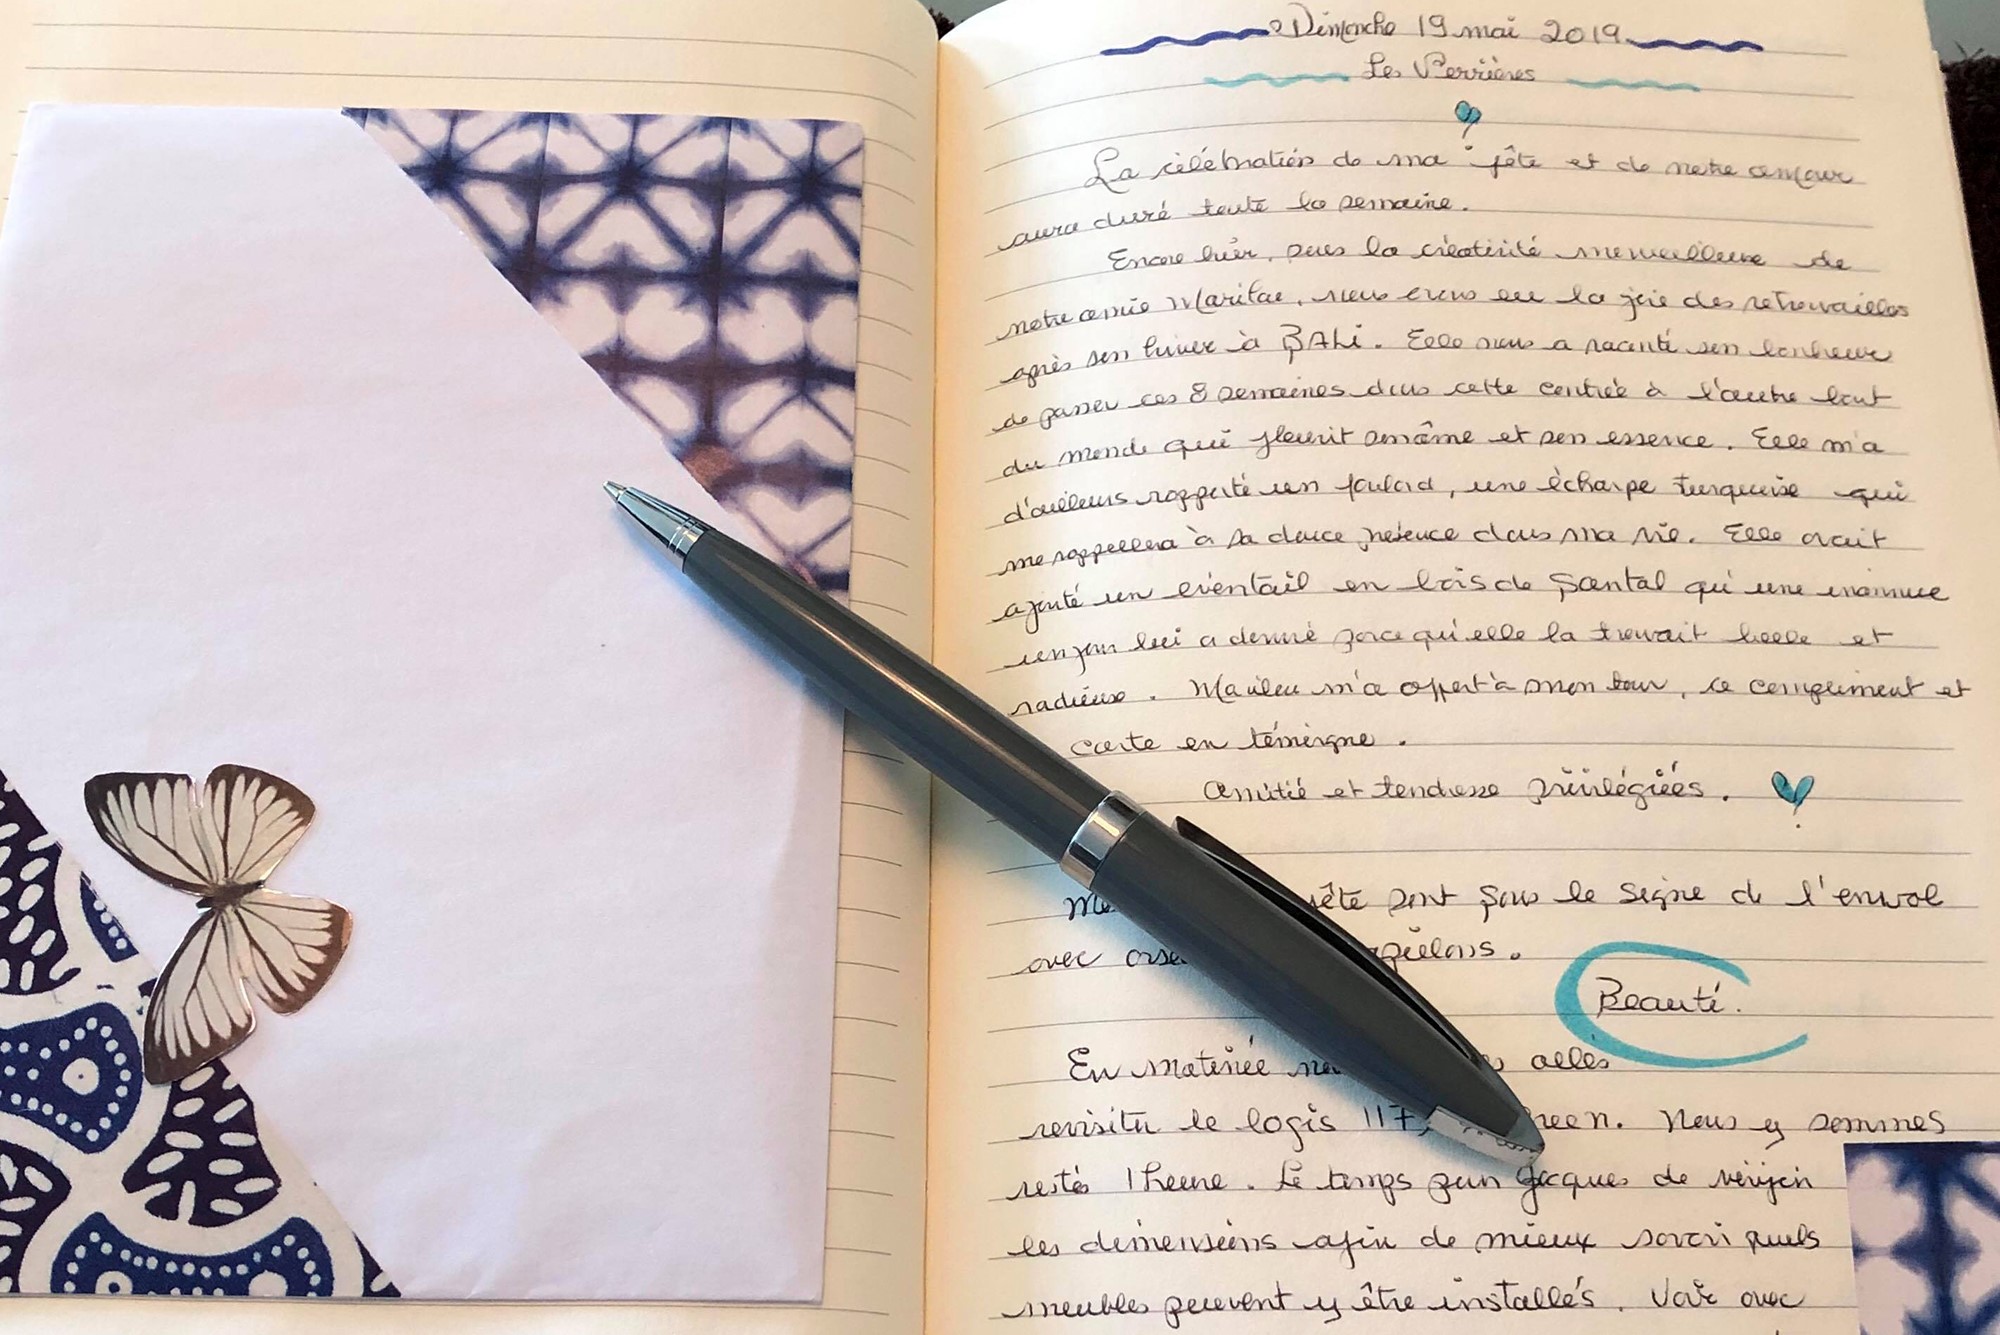 Dimanche 19 mai 2019
Les Verrières
La célébration de ma fête et de notre amour
aura duré toute la semaine.
Encore hier, sous la créativité merveilleuse de
notre amie Marilou, nous avons eu la joie des retrouvailles
après son hiver à BALi. Elle nous a raconté son bonheur
de passer ces 8 semaines dans cette contrée à l'autre bout
du monde qui fleurit son âme et son essence. Elle m'a
d'ailleurs rapporté un foulard, une écharpe turquoise qui
me rappellera à sa douce présence dans ma vie. Elle avait
ajouté un éventail en bois de Santal qu'une inconnue
un jour lui a donné parce qu'elle la trouvait belle et
radieuse. Marilou m'a offert à mon tour, ce compliment et
carte en témoigne.
Amitié et tendresse privilégiées.
fête sont sous le signe de l'envol
avec
Beauté.
En matinée allés
revisiter le logis 117, Nous y sommes
restés 1 heure. Le temps pour Jacques de
les dimensions afin de mieux savoir quels
meubles peuvent y être installés. Voir avec